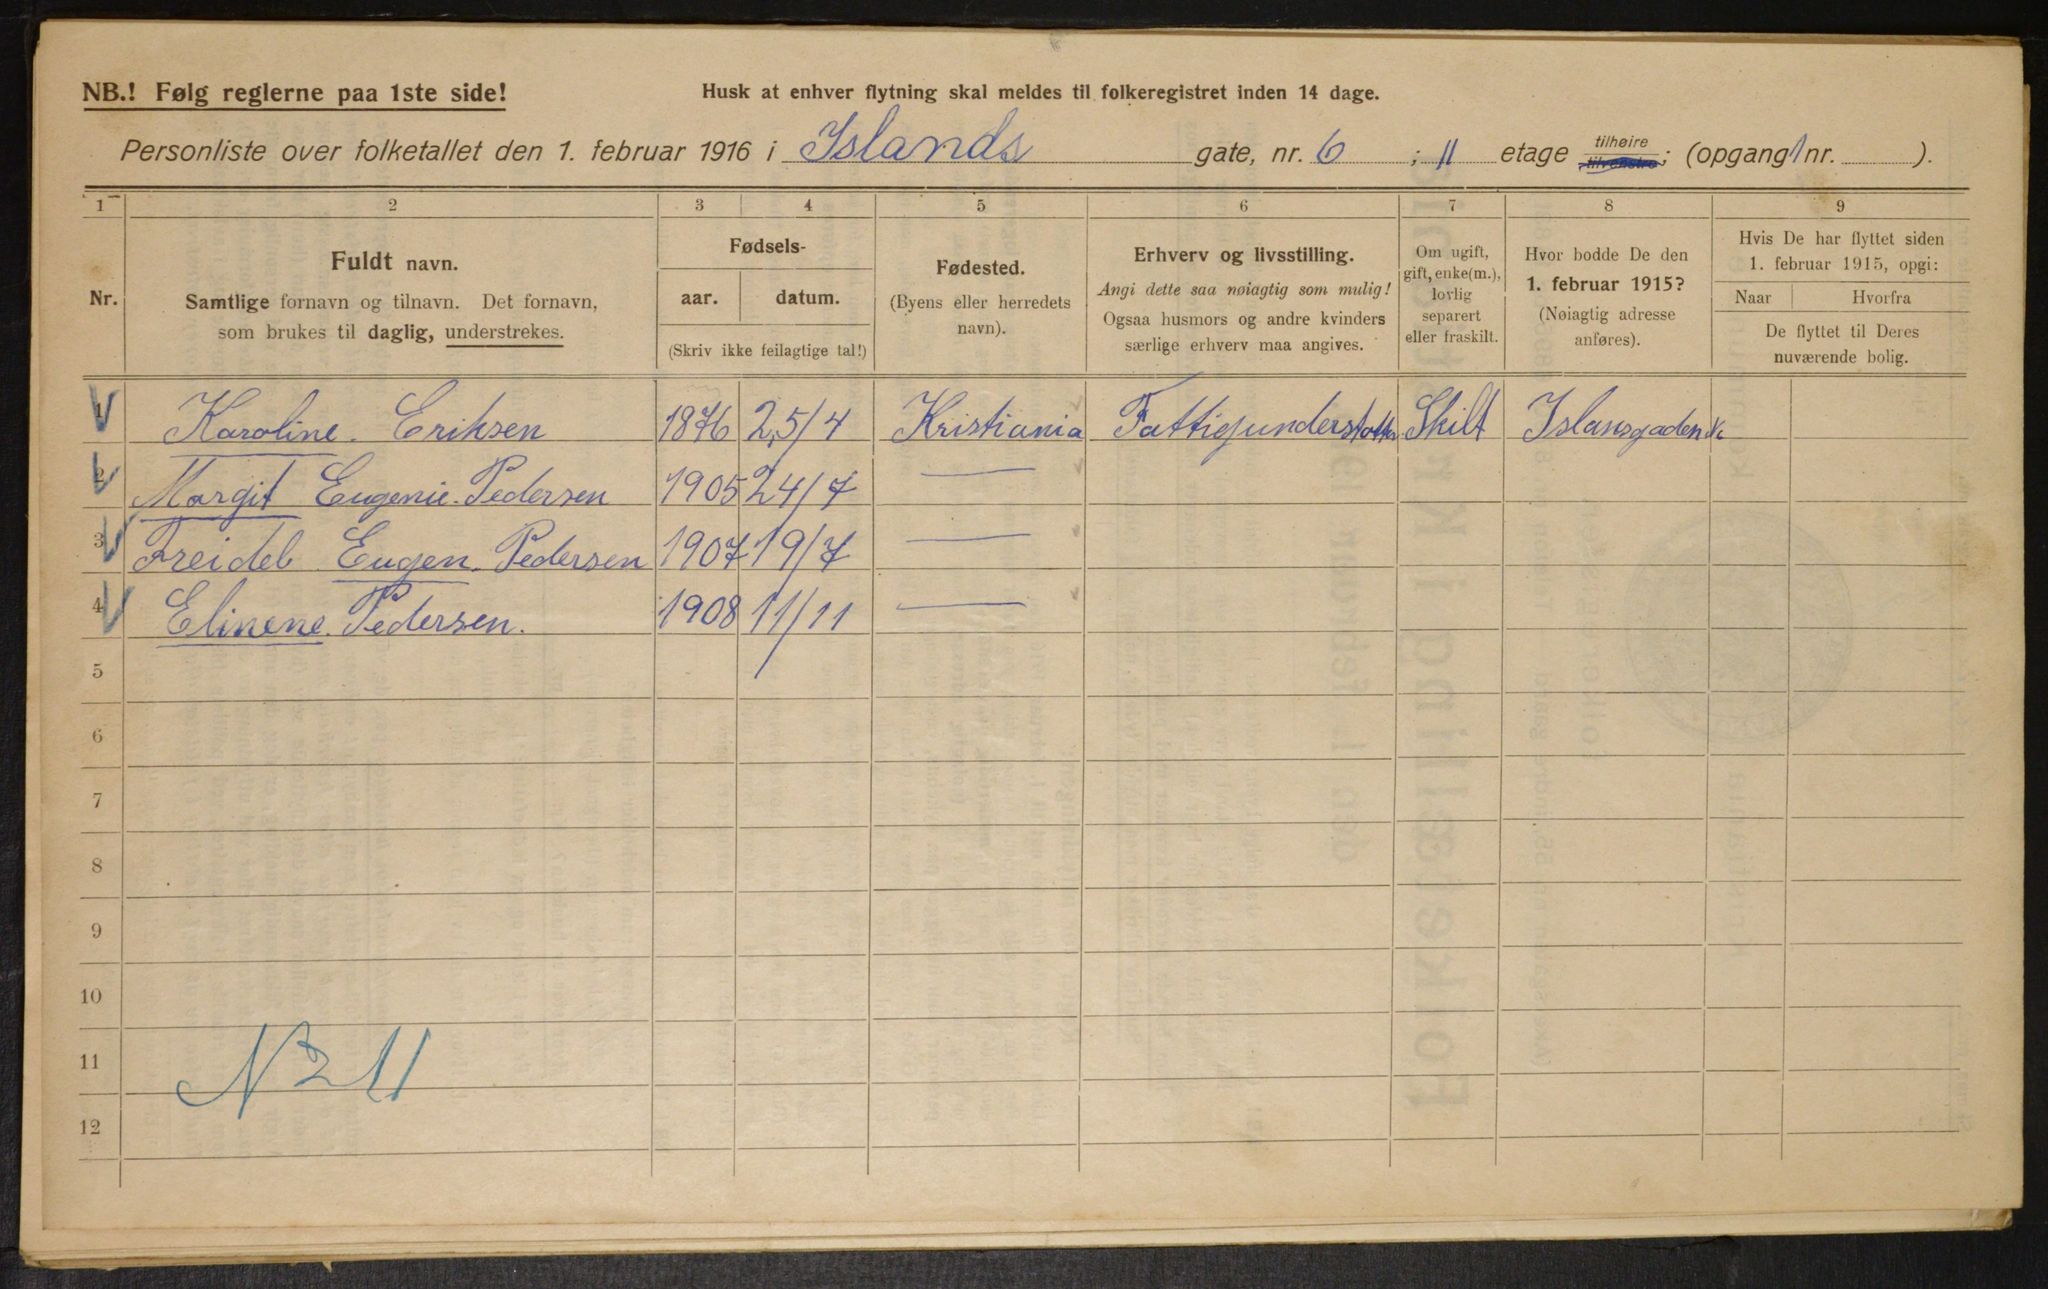 NB.! Følg reglerne paa 1ste side!
Husk at enhver flytning skal meldes til folkeregistret inden 14 dage.
Personliste over folketallet den 1. februar 1916 i Islands gate, nr. 6 ; II etage tilhøire tilvenstre; (opgang 1 nr. ).
1 2 3 4 5 6 7 8 9
Nr.
Fuldt navn.
Samtlige fornavn og tilnavn. Det fornavn,
som brukes til daglig, understrekes.
Fødsels-
aar. datum.
(Skriv ikke feilagtige tal!)
Fødested.
(Byens eller herredets
navn).
Erhverv og livsstilling.
Angi dette saa nøiagtig som mulig!
Ogsaa husmors og andre kvinders
særlige erhverv maa angives.
Om ugift,
gift, enke(m.),
lovlig
separert
eller fraskilt.
Hvor bodde De den
1. februar 1915?
(Nøiagtig adresse
anføres).
Hvis De har flyttet siden
1. februar 1915, opgi:
Naar Hvorfra
De flyttet til Deres
nuværende bolig.
1 Karoline. Eriksen 1876 25/4 Kristiania Skilt
2 Margit Eugenie. Pedersen 1905 24/7 —
3 Freidel Eugen. Pedersen 1907 19/7 —
4 Elinene. Pedersen. 1908 11/11 —
5
6
7
8
9
10
11
12